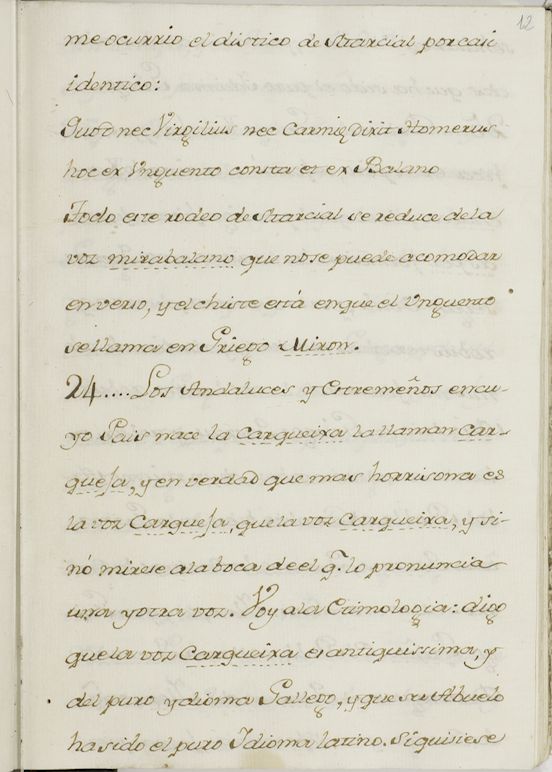 12
me ocurrio el distico de Marcial por casi
identico:
Quod nec Virgilius nec Carmine dixit Homerus
hoc ex Vnguento consta et ex Balano
Todo este rodeo de Marcial se reduce de la
voz mirabalano que no se puede acomodar
en verso, y el chiste está en que el Vnguento
se llama en Griego Miron.
24.... Los Andaluces y Estremeños en cu-
yo Pais nace la Carqueixa la llaman Car-
quesa, y en verdad que mas horrisona es
la voz Carquesa, que la voz Carqueixa, y si-
nó mirese a la boca de el q.^e lo pronuncia
una y otra voz. Voy a la Etimologia: digo
que la voz Carqueixa es antiquissima, y
del puro ydioma Gallego, y que su Abuelo
ha sido el puro Idioma latino. Si quisiese